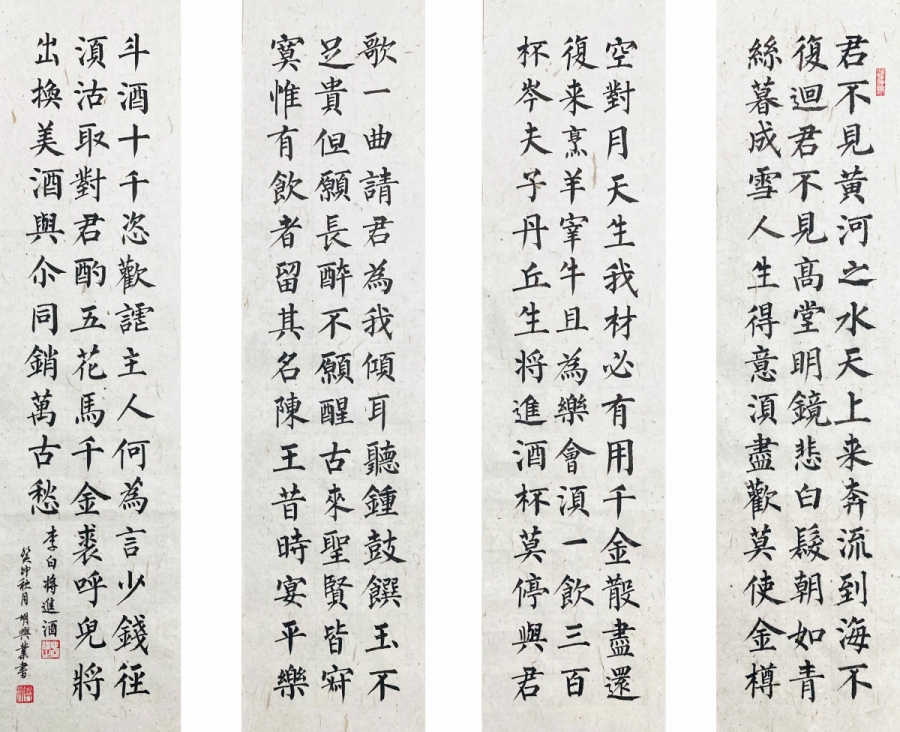 君不見黃河之水天上来奔流到海不
復迴君不見高堂明鏡悲白髮朝如青
絲暮成雪人生得意湏盡歡莫使金樽
空對月天生我材必有用千金散盡還
復来烹羊宰牛且為樂會湏一飲三百
杯岑夫子丹丘生将進酒杯莫停與君
歌一曲請君為我傾耳聽鍾鼓饌玉不
足貴但願長醉不願醒古來聖賢皆寂
寞惟有飲者留其名陳王昔時宴平樂
斗酒十千恣歡謔主人何為言少錢径
湏沽取對君酌五花馬千金裘呼兒将
出換美酒與尒同銷萬古愁
李白将進酒
癸卯秋月胡興業書